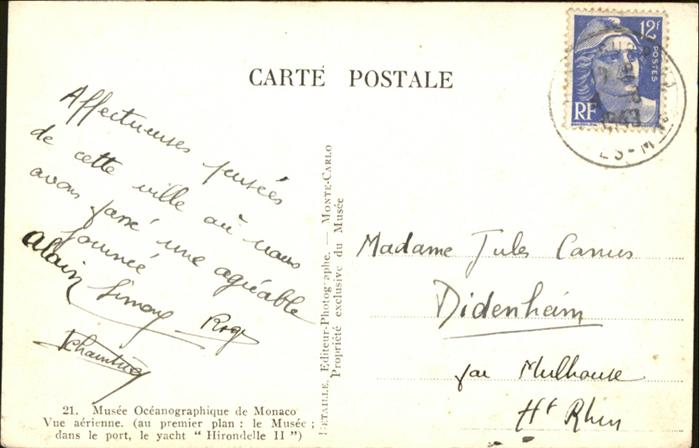 CARTE POSTALE
12F
POSTES
RF
Affectueuses pensées
de cette ville où nous
avons passé une agréable
journée
Alain Simony Roge
21. Musée Océanographique de Monaco
Vue aérienne. (au premier plan : le Musée ;
dans le port, le yacht “ Hirondelle II ”)
DETAILLE, Editeur-Photographe. — MONTE-CARLO
Propriété exclusive du Musée
Madame Jules Camus
Didenheim
par Mulhouse
Ht Rhin